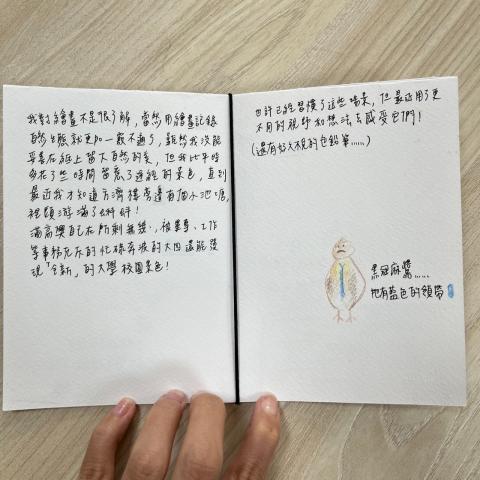 我對繪畫不是很了解，當然用繪畫記錄
自然生態就更加一竅不通了，雖然我沒能
妥善在紙上留大自然的美，但我比平時
多花了些時間留意了途經的景色，直到
最近我才知道方濟樓旁邊有個小池塘，
裡頭游滿了蝌蚪！
滿高興自己在所剩無幾、被畢專、工作
等事務充斥的忙碌奔波的大四還能發
現「全新」的大學校園景色！
也許已經習慣了這些場景，但最近用了更
不同的視野和想法去感受它們！
(還有好久不見的色鉛筆......)
黑冠麻鷺......
他有藍色的領帶